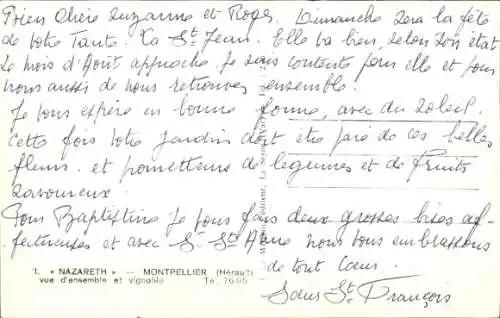 Bien Chère Suzanne et Roger. Dimanche sera la fête
de votre Tante. La St Jean. Elle va bien, selon son état
Le mois d'Août approche, je suis contente pour elle et pour
nous aussi de nous retrouver ensemble.
Je vous espère en bonne forme, avec du Soleil.
Cette fois votre jardin doit être paré de ces belles
fleurs. et prometteurs de légumes et de fruits
savoureux.
Pour Baptistine je vous fais deux grosses bises af-
fectueuses et avec Sr St Anne nous vous embrassons
de tout Cœur.
Sœur St François
1. « NAZARETH » — MONTPELLIER (Hérault)
vue d'ensemble et vignoble Té. 76-95